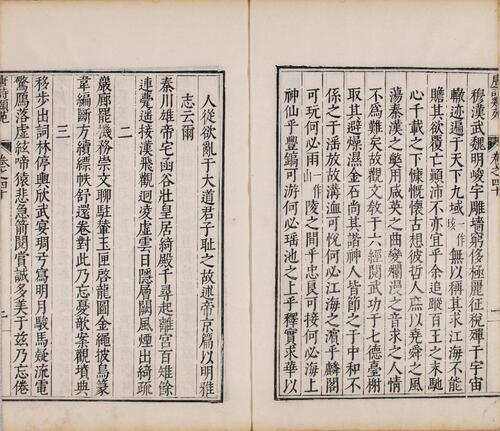 穆漢武魏明峻宇雕墻窮侈極麗征稅殫于宇宙
轍迹遍于天下九域一作垓無以稱其求江海不能
贍其欲覆亡顛沛不亦宜乎余追蹤百王之末馳
心千載之下慷慨懷古想彼哲人庶以堯舜之風
蕩秦漢之弊用咸英之曲變爛漫之音求之人情
不爲難矣故觀文敎于六經閱武功于七德臺榭
取其避燥濕金石尚其諧神人皆節之于中和不
係之于淫放故溝洫可悅何必江海之濱乎麟閣
可玩何必兩一作山陵之間乎忠良可接何必海上
神仙乎豐鎬可游何必瑤池之上乎釋實求華以
人從欲亂于大道君子耻之故述帝京篇以明雅
志云爾
秦川雄帝宅函谷壯皇居綺殿千尋起離宮百雉餘
連甍遙接漢飛觀迥凌虛雲日隱層闕風煙出綺疏
二
巖廊罷機務崇文聊駐輦玉匣啓龍圖金繩披鳥篆
韋編斷方續縹帙舒還卷對此乃忘憂欹案觀墳典
三
移步出詞林停輿欣武宴琱弓寫明月駿馬疑流電
驚鴈落虛弦啼猿悲急箭閱賞誠多美于兹乃忘倦